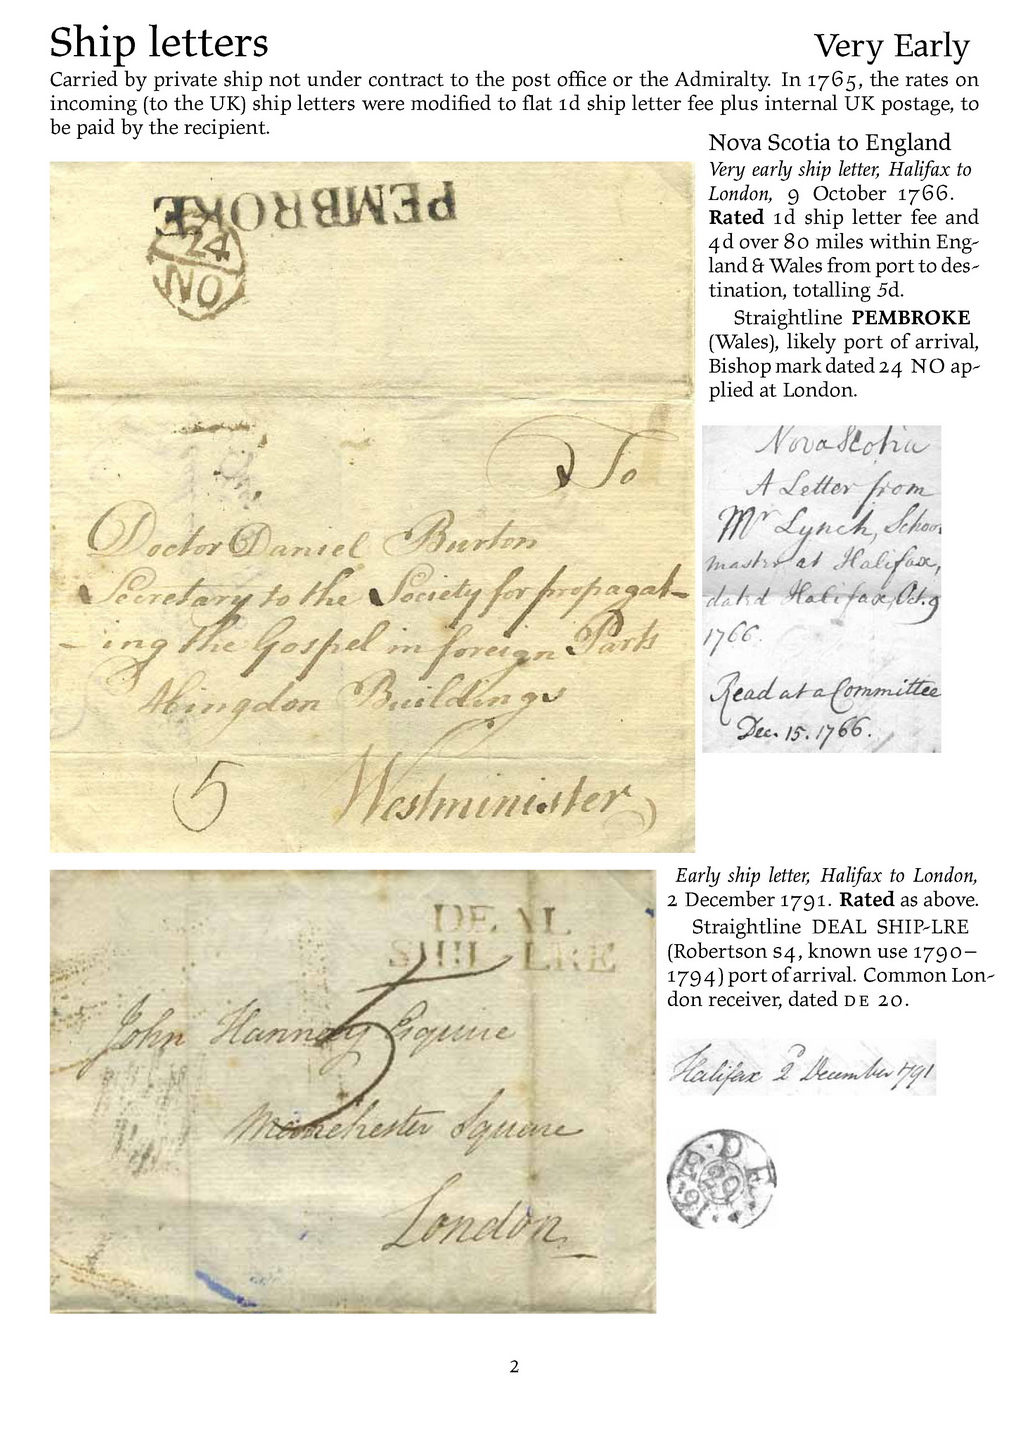 Ship letters
Very Early
Carried by private ship not under contract to the post office or the Admiralty. In 1765, the rates on
incoming (to the UK) ship letters were modified to flat 1d ship letter fee plus internal UK postage, to
be paid by the recipient.
Nova Scotia to England
Very early ship letter, Halifax to
London, 9 October 1766.
Rated 1d ship letter fee and
4d over 80 miles within Eng-
land & Wales from port to des-
tination, totalling 5d.
Straightline PEMBROKE
(Wales), likely port of arrival,
Bishop mark dated 24 NO ap-
plied at London.
PEMBROKE
24
NO
To
Doctor Daniel Burton
Secretary to the Society for propagat-
-ing the Gospel in foreign Parts
Abingdon Buildings
5 Westminister
Nova Scotia
A Letter from
Mr Lynch, School
master at Halifax,
dated Halifax, Oct. 9
1766.
Read at a Committee
Dec. 15. 1766.
Early ship letter, Halifax to London,
2 December 1791. Rated as above.
Straightline DEAL SHIP-LRE
(Robertson S4, known use 1790–
1794) port of arrival. Common Lon-
don receiver, dated DE 20.
DEAL
SHIP LRE
5
John Hannay Esquire
Manchester Square
London
Halifax 2d December 1791
DE
20
E
91
2